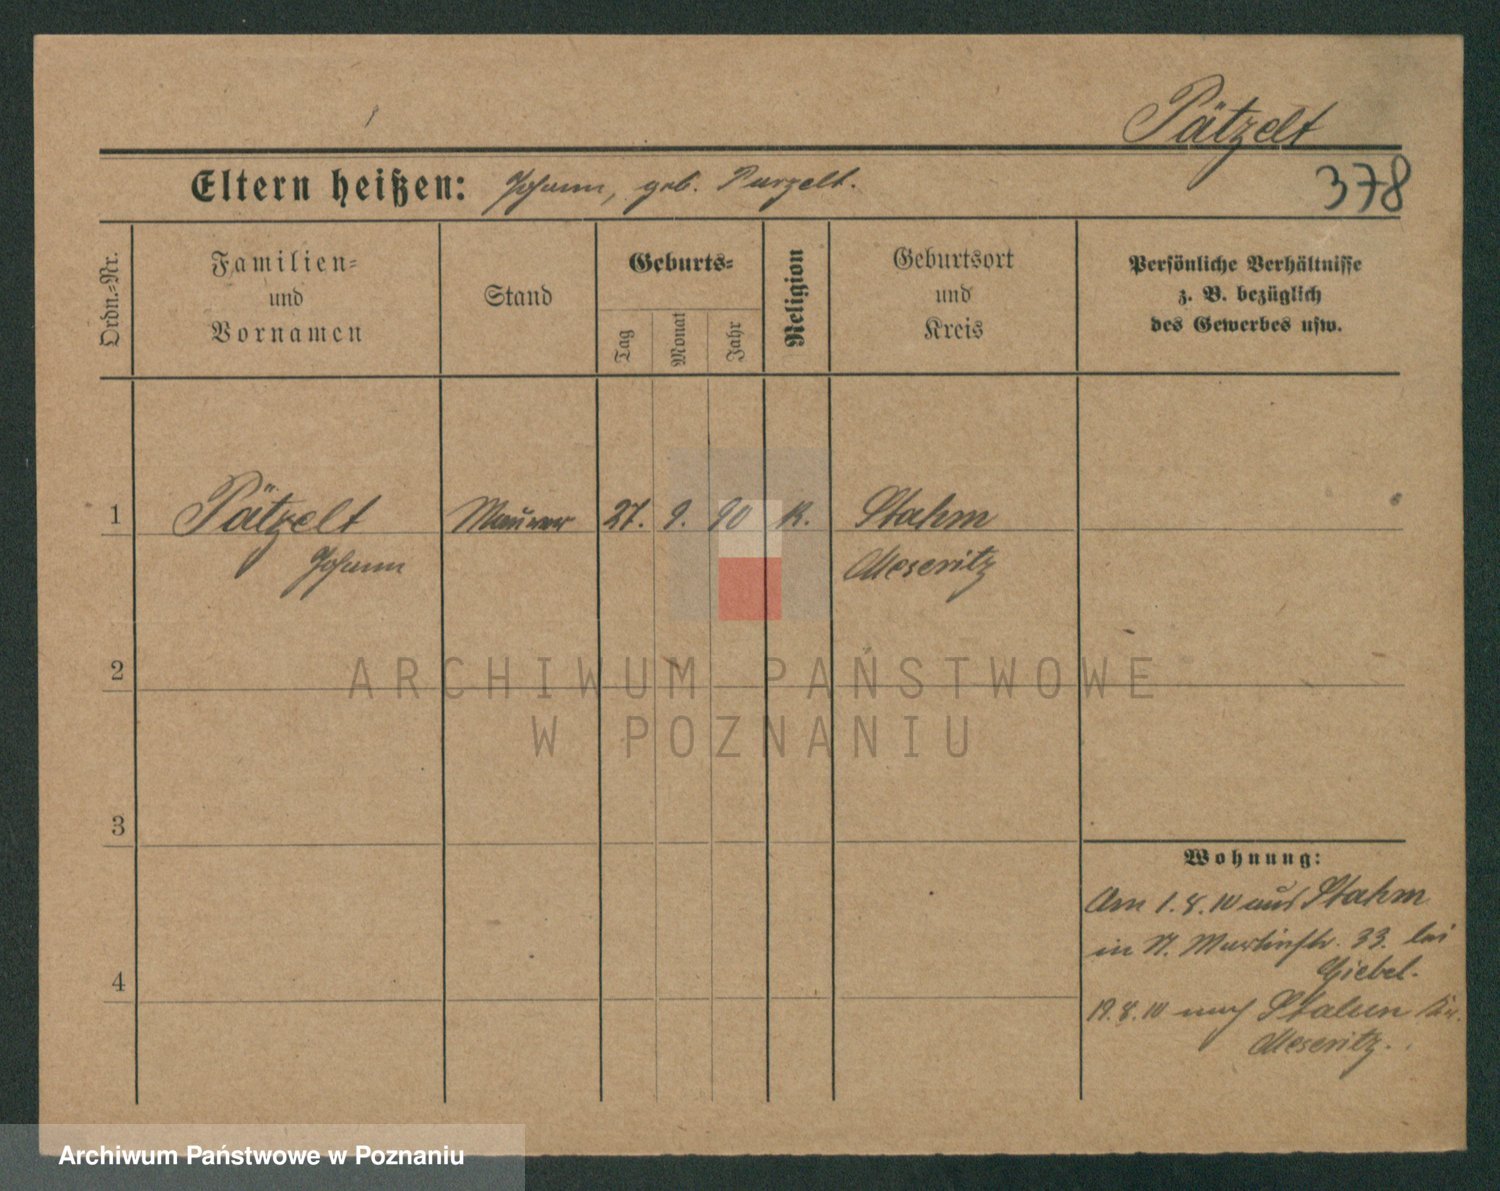 Pätzelt
378
Eltern heißen: Johann, geb. Purzelt.
Ordn.-Nr.
Familien-
und
Vornamen
Stand
Geburts-
Tag
Monat
Jahr
Religion
Geburtsort
und
Kreis
Persönliche Verhältnisse
z. B. bezüglich
des Gewerbes usw.
1 Pätzelt Maurer 27. 9. 90 K. Stahm
Johann Meseritz
2
3
4
Wohnung:
Am 1.8.10 aus Stahm
in N. Martinstr. 33. bei
Giebel.
19.8.10 nach Kr.
Meseritz.
ARCHIWUM PAŃSTWOWE
W POZNANIU
Archiwum Państwowe w Poznaniu